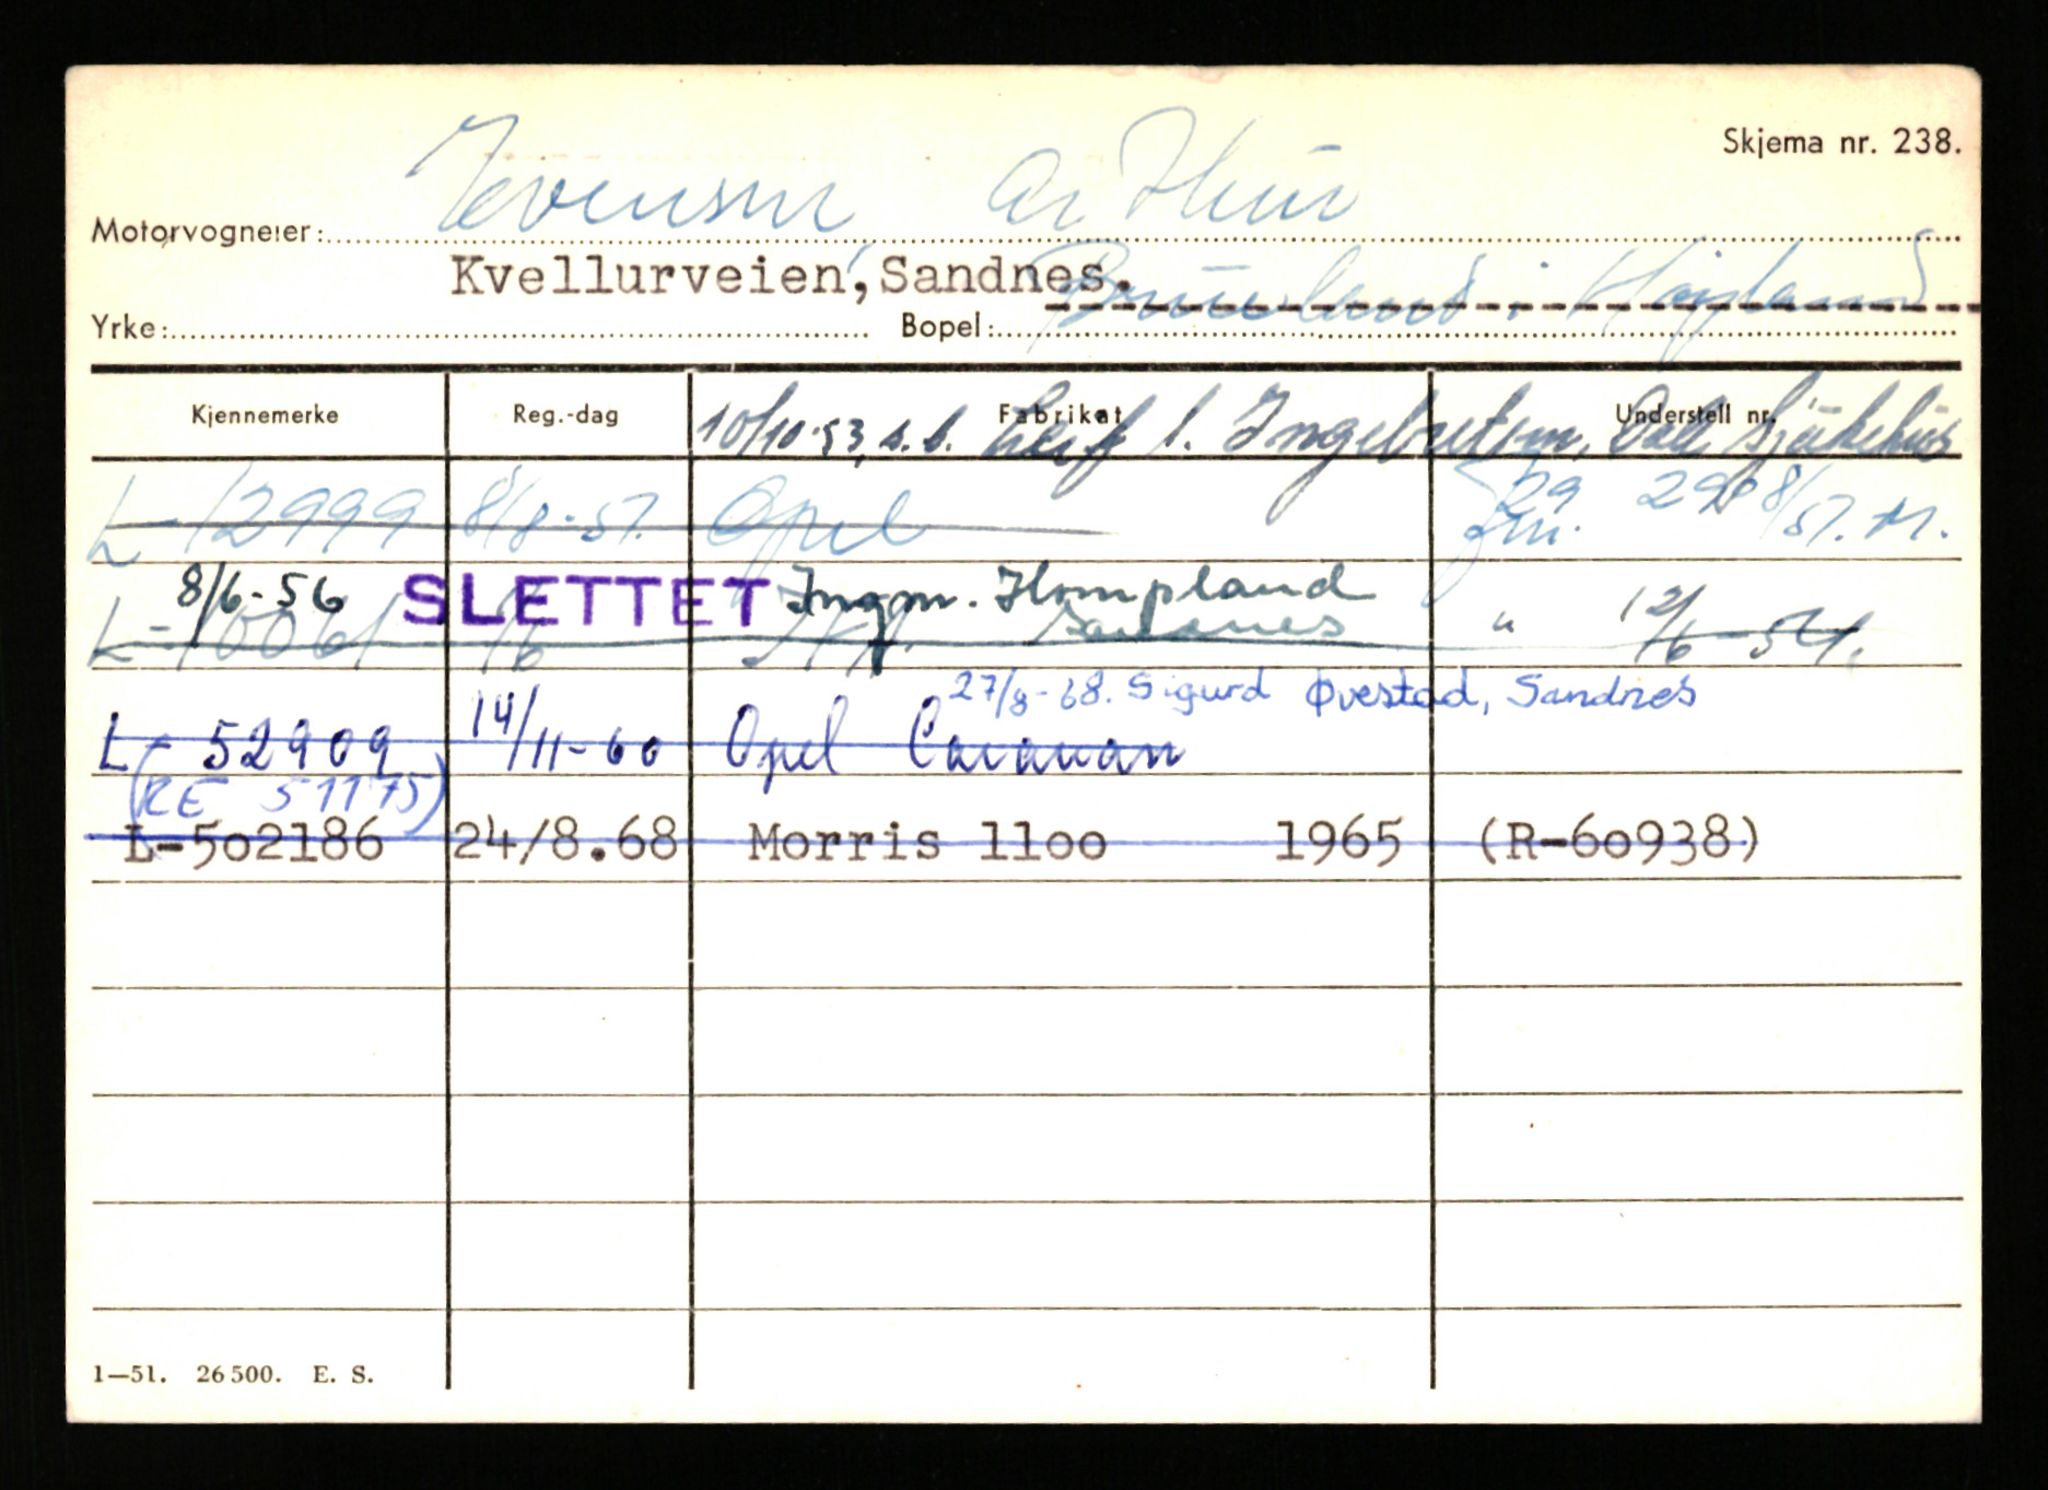 Skjema nr. 238.
Motorvogneier: Evensen, Arthur
Kvellurveien, Sandnes.
Yrke: Bopel: i Høyland
Kjennemerke Reg.-dag Fabrikat Understell nr.
10/10-53, s.b. Leif l. Ingebretsen, Dale Sjukehus
L-12999 8/8-51. Opel 29/8 51. M.
8/6-56 SLETTET Ingm. Hompland
L-10061 Sandnes " 12/6-54.
27/8-68. Sigurd Øvestad, Sandnes
L-52909 14/11-60 Opel Caravan
(RE 51175)
L-502186 24/8.68 Morris 1100 1965 (R-60938)
1—51. 26500. E. S.